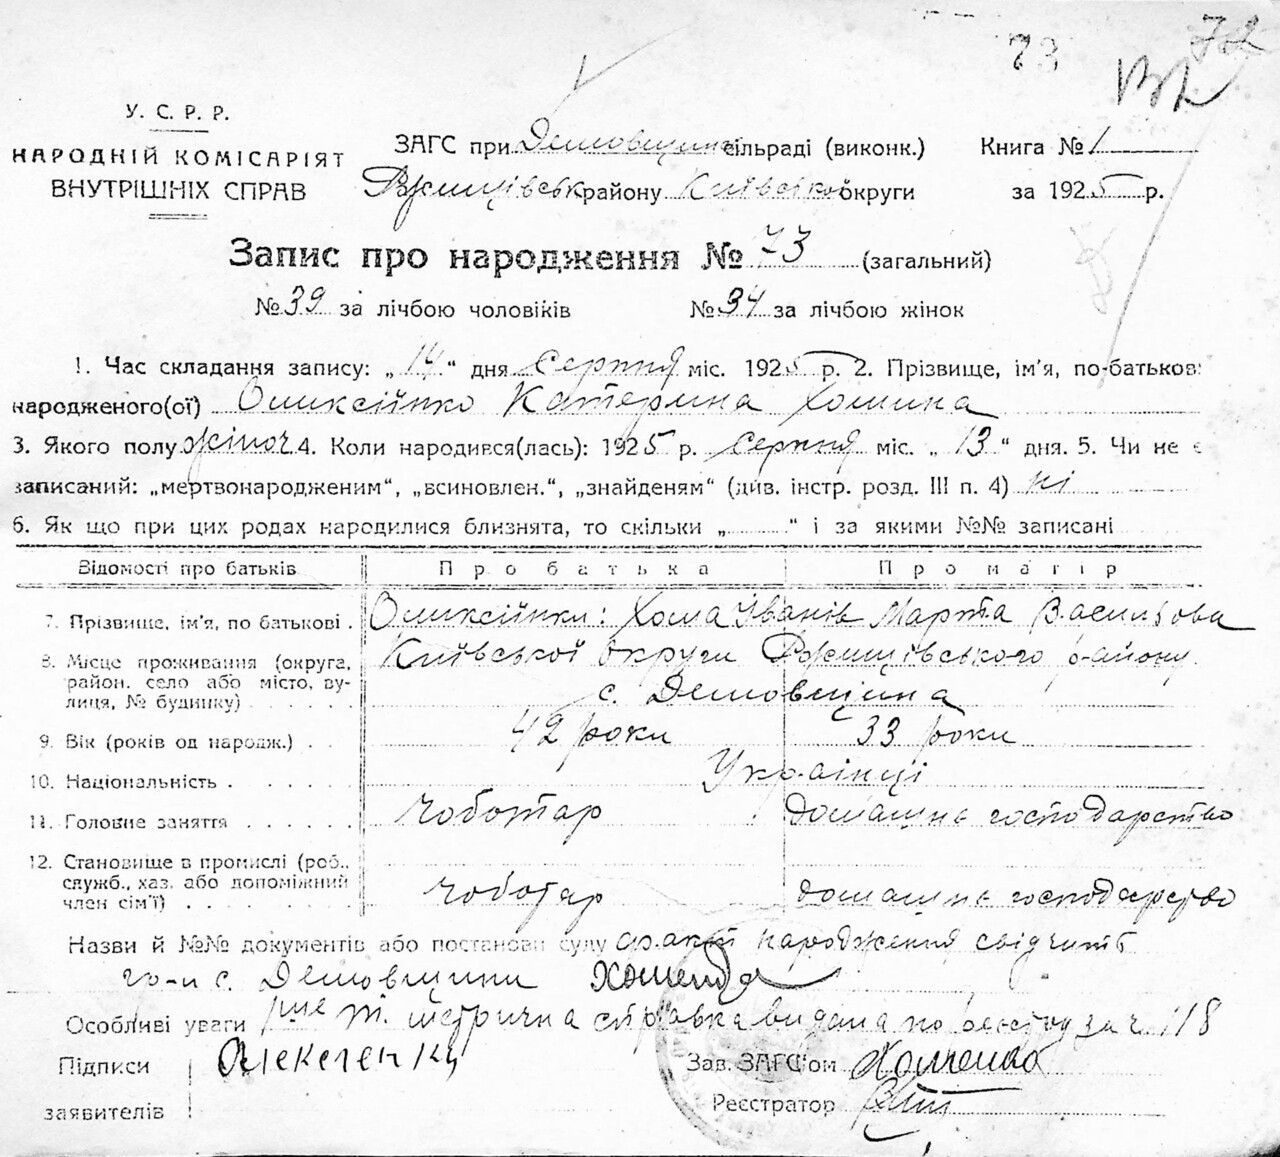 73 72
У. С. Р. Р.
НАРОДНІЙ КОМІСАРІЯТ
ВНУТРІШНІХ СПРАВ
ЗАГС при Демовщина сільраді (виконк.)
Ржищівськ району Київської округи
Книга № 1
за 1925 р.
Запис про народження № 73 (загальний)
№ 39 за лічбою чоловіків № 34 за лічбою жінок
1. Час складання запису: „ 14 “ дня серпня міс. 1925 р. 2. Прізвище, ім'я, по-батькові
народженого(ої) Оликсійнко Катерина Хомина
3. Якого полу жіноч 4. Коли народився(лась): 1925 р. серпня міс. „ 13 “ дня. 5. Чи не є
записаний: „мертвонародженим“, „всиновлен.“, „знайденям“ (див. інстр. розд. III п. 4) ні
6. Як що при цих родах народилися близнята, то скільки „ “ і за якими №№ записані
Відомості про батьків Про батька Про матір
7. Прізвище, ім'я, по батькові . Оликсійнки: Хома Іванів Марта Васильова
8. Місце проживання (округа, район, село або місто, вулиця, № будинку) Київської округи Ржищівського району
с. Демовщина
9. Вік (років од народж.) . . 42 роки 33 роки
10. Національність . Українці
11. Головне заняття чоботар домашнь господарство
12. Становище в промислі (роб., служб., хаз. або допоміжний член сім'ї) чоботар домашнь господарство
Назви й №№ документів або постанови суду факт народження свідчить
гр-н с. Демовщини Хоменко
Особливі уваги метрична справка видана по реєстру за ч. 118
Підписи Алексієнко Зав. ЗАГС'ом Хоменко
заявителів Реєстратор